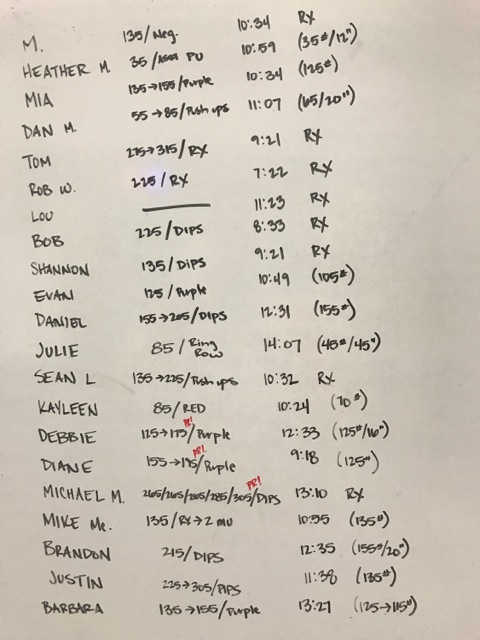 M. 135/Neg. 10:34 RX
HEATHER M. 35/Asst PU 10:59 (35#/12")
MIA 135→155/Purple 10:34 (125#)
DAN M. 55→85/Push ups 11:07 (65/20")
TOM 275→315/RX 9:21 RX
ROB W. 225/RX 7:22 RX
LOU —— 11:23 RX
BOB 225/DIPS 8:33 RX
SHANNON 135/DIPS 9:21 RX
EVAN 125/Purple 10:49 (105#)
DANIEL 155→205/DIPS 12:31 (155#)
JULIE 85/Ring Row 14:07 (45#/45")
SEAN L 135→225/Push ups 10:32 RX
KAYLEEN 85/RED 10:24 (70#)
DEBBIE 125→175/Purple PR! 12:33 (125#/16")
DIANE 155→195/Purple PR! 9:18 (125#)
MICHAEL M. 265/265/285/305/DIPS PR! 13:10 RX
MIKE Mc. 135/RX→2 MU (135#)
BRANDON 215/DIPS 12:35 (155#/20")
JUSTIN 225→305/ 11:38 (135#)
BARBARA 135→155/Purple 13:27 (125→115#)